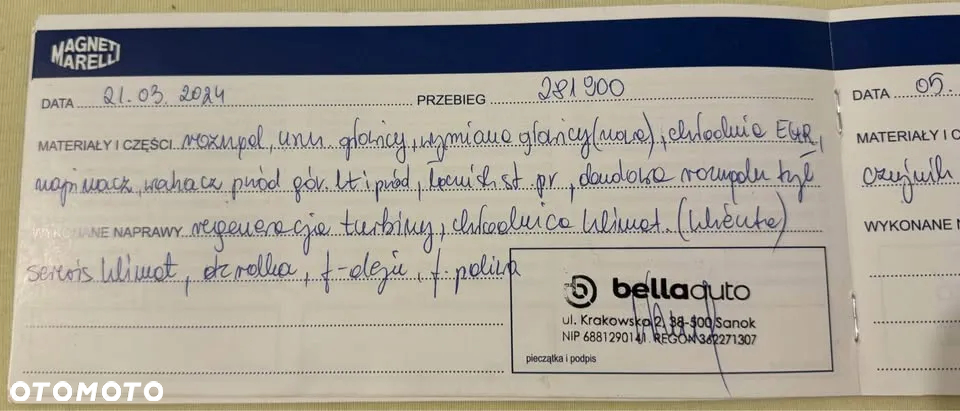 MAGNETI MARELLI
DATA 21.03.2024 PRZEBIEG 281900
MATERIAŁY I CZĘŚCI rozrząd, głowicy, wymiana głowicy (nowa), chłodnica EGR,
napinacz, wahacz przód gór. lt i pród, łącznik st. pr,
WYKONANE NAPRAWY regeneracja turbiny, chłodnica klimat. (klienta)
serwis klimat,
bellaauto
ul. Krakowska 2, 38-500 Sanok
NIP 6881290141 REGON 362271307
pieczątka i podpis
DATA 05.
MATERIAŁY I C
czujnik
WYKONANE N
OTOMOTO